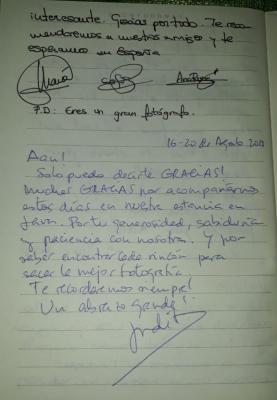 interesante. Gracias por todo. Te reco-
mendaremos a nuestros amigos y te
esperamos en España
María
P.D: Eres un gran fotógrafo.
16-20 de Agosto
Solo puedo decirte GRACIAS!
Muchas GRACIAS por acompañarnos
estos días en nuestra estancia en
Java. Por tu generosidad, sabiduría
y paciencia con nosotros. Y por
saber encontrar cada rincón para
sacar la mejor fotografía.
Te recordaremos siempre!
Un abrazo grande!
Judit